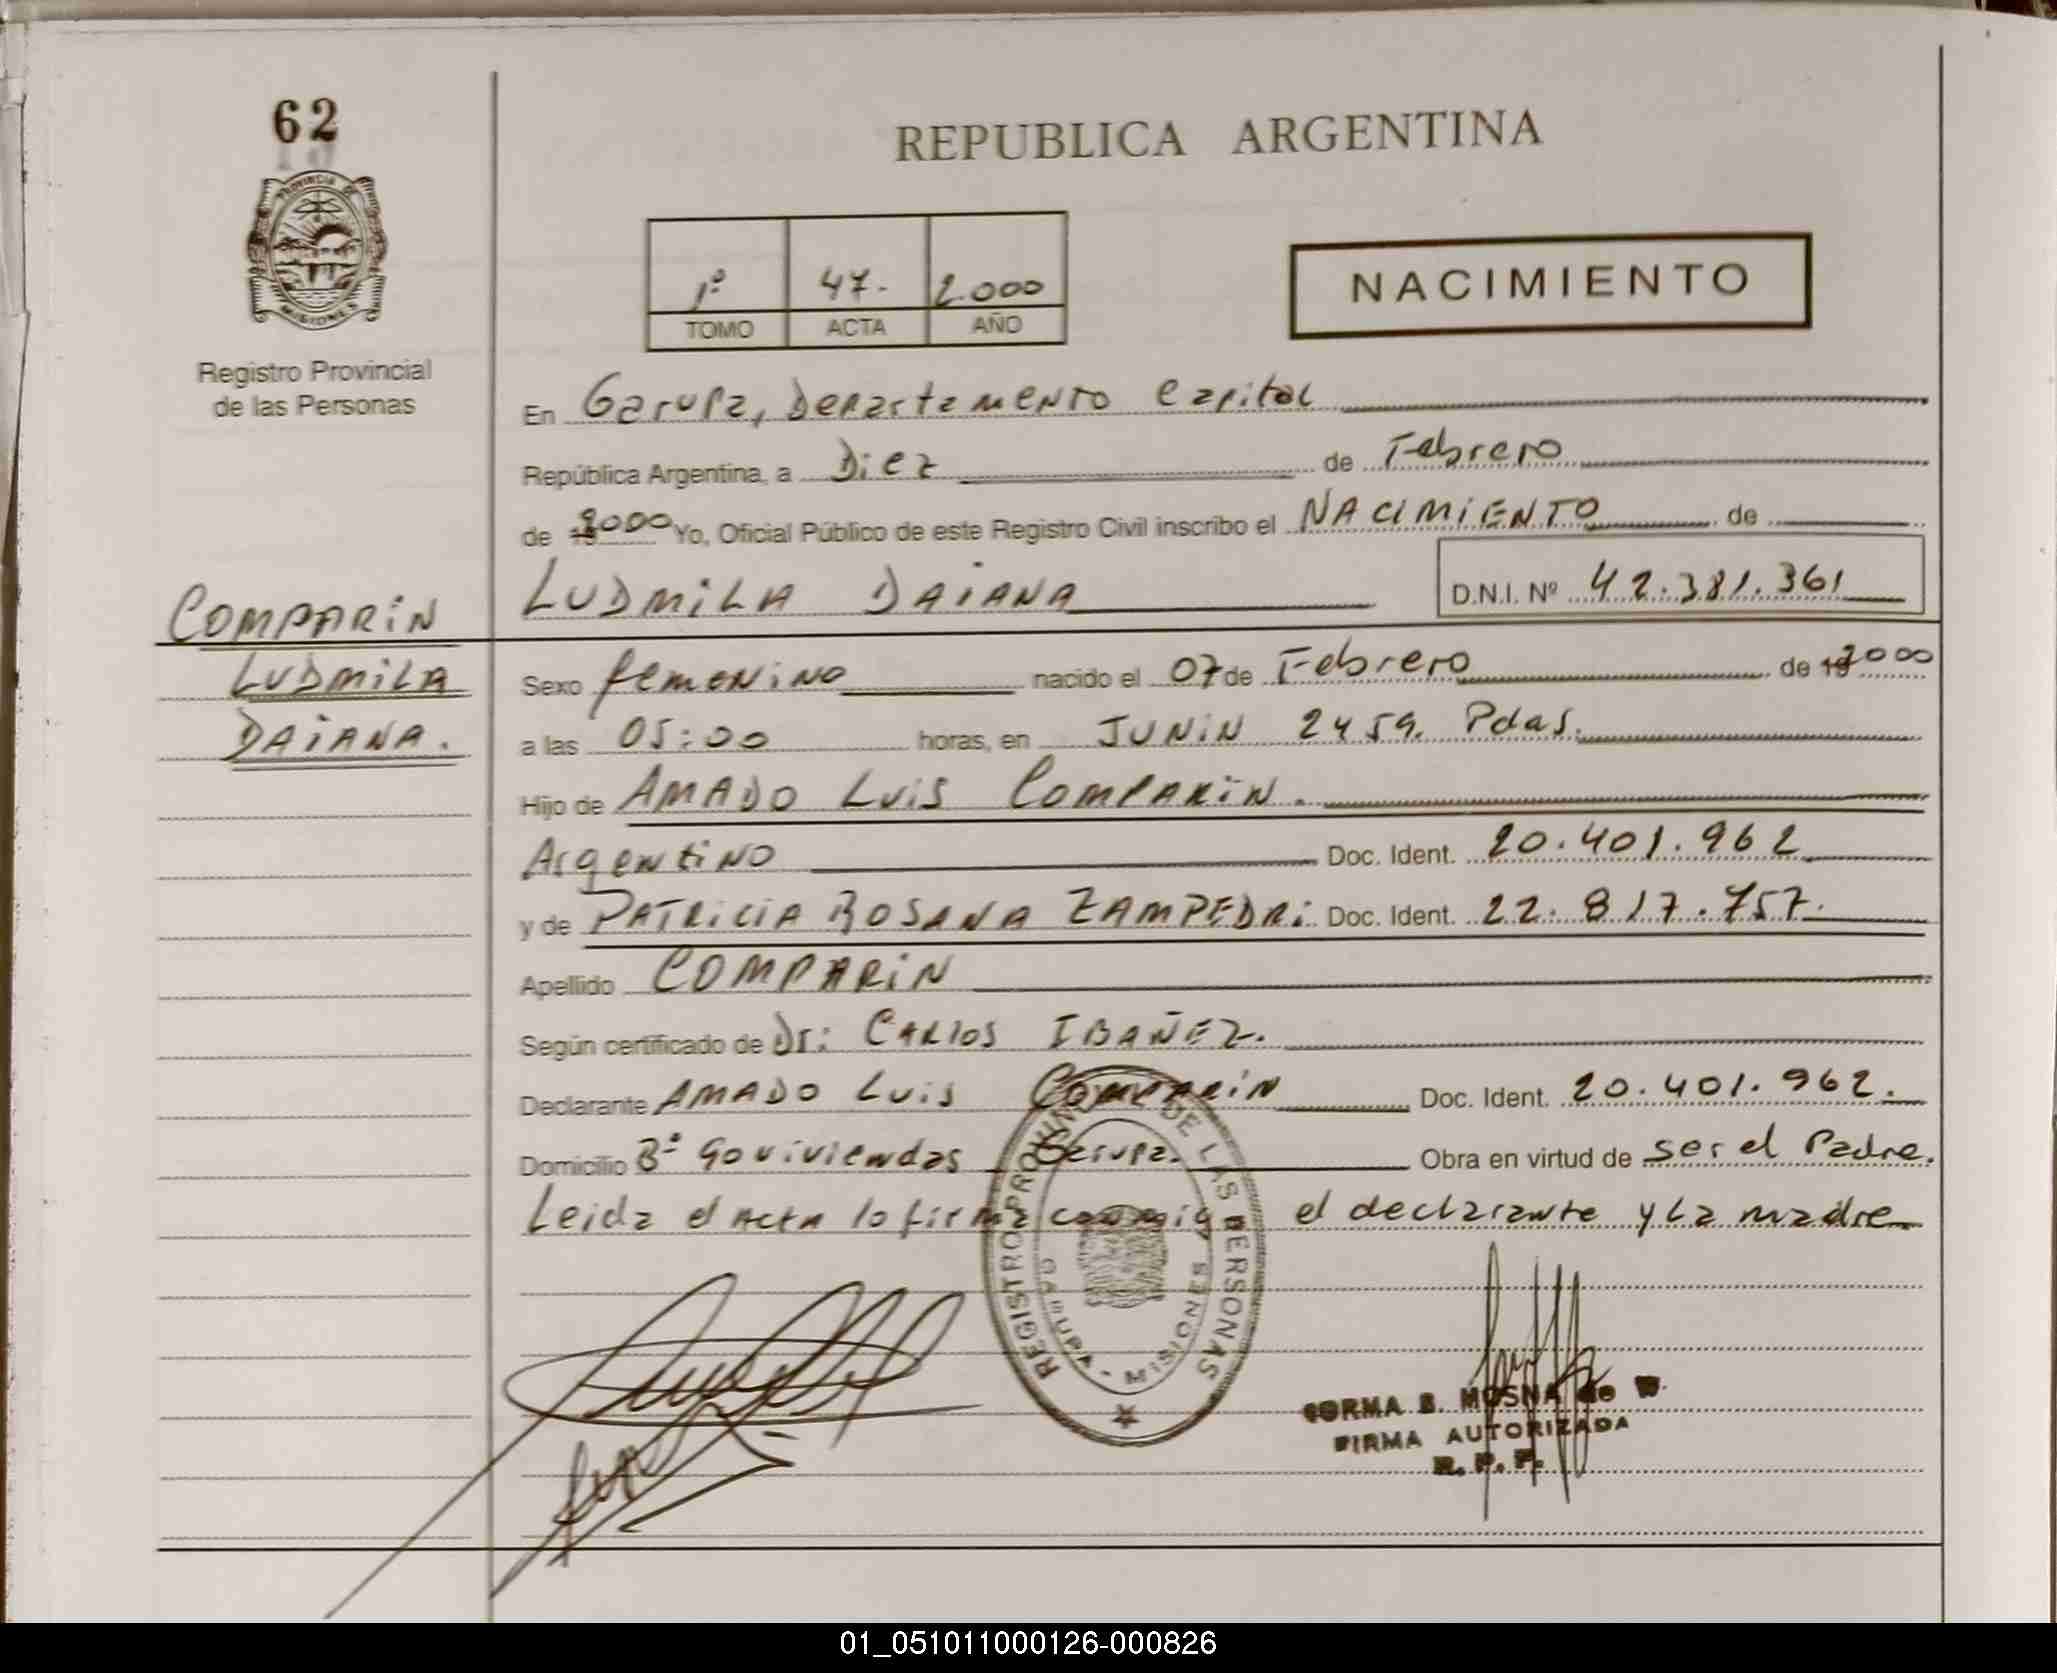 62
PROVINCIA DE
MISIONES
Registro Provincial
de las Personas
REPUBLICA ARGENTINA
1º 47. 2.000
TOMO ACTA AÑO
NACIMIENTO
En Garupa, Departamento Capital
República Argentina, a Diez de Febrero
de 2000 Yo, Oficial Público de este Registro Civil inscribo el NACIMIENTO de
LUDMILA DAIANA D.N.I. Nº 42.381.361
COMPARIN
LUDMILA
DAIANA.
Sexo femenino nacido el 07 de Febrero de 19 2000
a las 05:00 horas, en JUNIN 2459. Pdas.
Hijo de AMADO LUIS COMPARIN.
Argentino Doc. Ident. 20.401.962
y de PATRICIA ROSANA ZAMPEDRI Doc. Ident. 22.817.757.
Apellido COMPARIN
Según certificado de Dr: CARLOS IBAÑEZ.
Declarante AMADO LUIS COMPARIN Doc. Ident. 20.401.962.
Domicilio Bº 90 viviendas Garupa. Obra en virtud de ser el Padre.
Leida el Acta lo firma conmigo el declarante y la madre
REGISTRO PROVINCIAL DE LAS PERSONAS
GARUPA - MISIONES
NORMA B. MOSNA de W.
FIRMA AUTORIZADA
R. P. P.
01_051011000126-000826